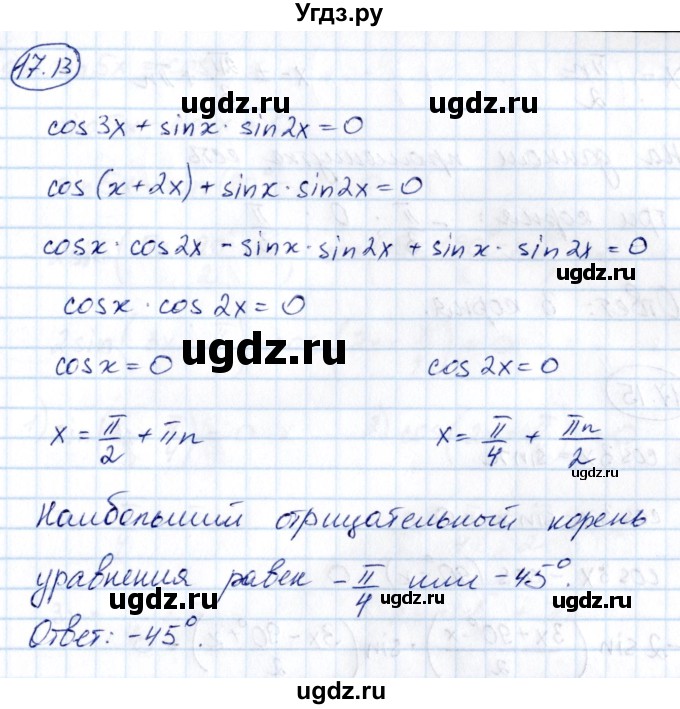 Угдз.ру
17.13
ugdz.ru
cos3x + sinx · sin2x = 0
ugdz.ru
cos(x+2x) + sinx · sin2x = 0
cosx · cos2x - sinx · sin2x + sinx · sin2x = 0
ugdz.ru
cosx · cos2x = 0
ugdz.ru
cosx = 0 cos2x = 0
x = π/2 + πn x = π/4 + πn/2
ugdz.ru
ugdz.ru
Наибольший отрицательный корень
уравнения равен -π/4 или -45°.
ugdz.ru
ugdz.ru
Ответ: -45°.
ugdz.ru
ugdz.ru
ugdz.ru